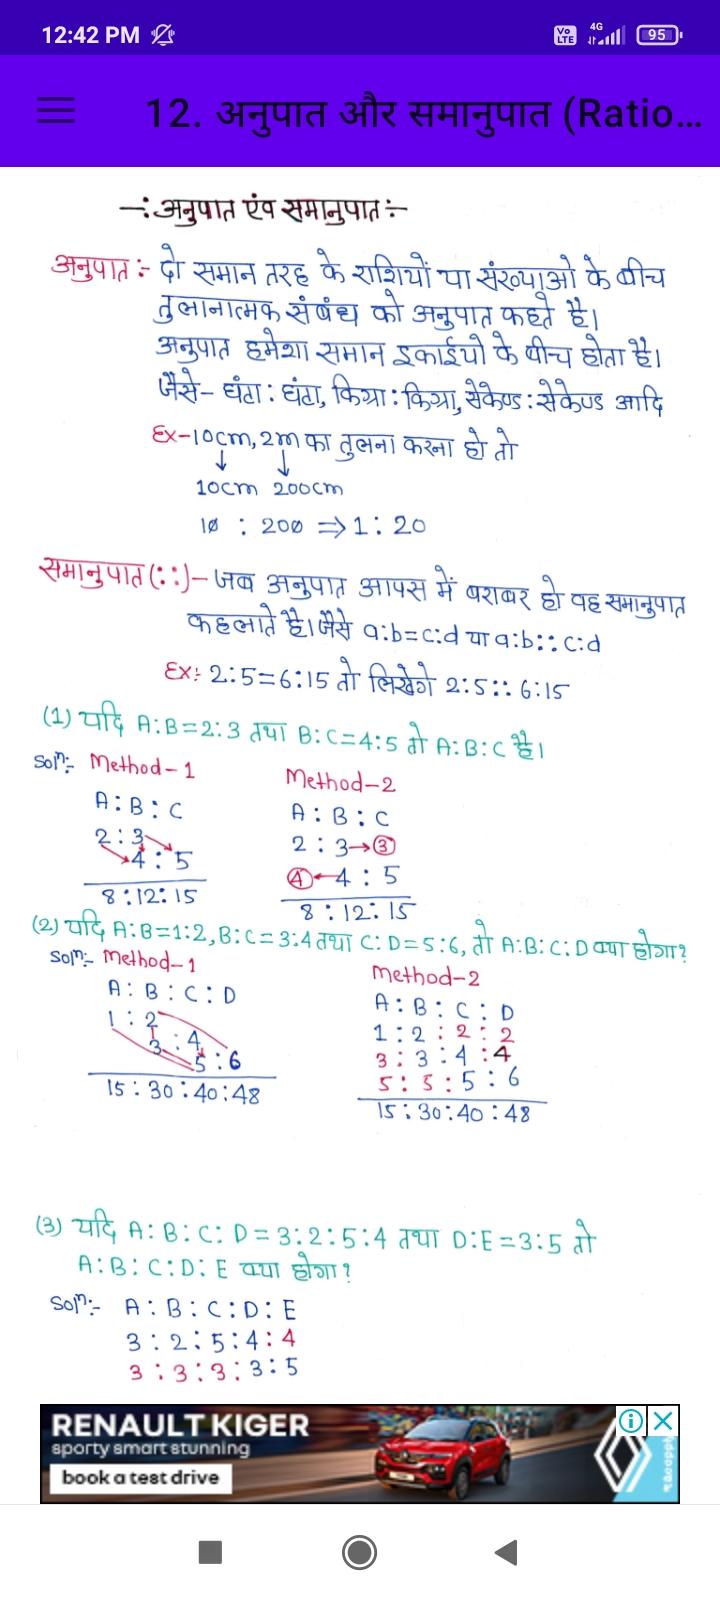 12:42 PM
Vo LTE 4G 95
12. अनुपात और समानुपात (Ratio...
-: अनुपात एंव समानुपात :-
अनुपात :- दो समान तरह के राशियों या संख्याओ के बीच
तुलानात्मक संबंध को अनुपात कहते है।
अनुपात हमेशा समान इकाईयो के बीच होता है।
जैसे- घंटा : घंटा, किग्रा : किग्रा, सेकेण्ड : सेकेण्ड आदि
Ex-10cm, 2m का तुलना करना हो तो
↓ ↓
10cm 200cm
10 : 200 ⇒ 1 : 20
समानुपात (::) - जब अनुपात आपस में बराबर हो वह समानुपात
कहलाते है। जैसे a:b=c:d या a:b::c:d
Ex:- 2:5=6:15 तो लिखेगे 2:5::6:15
(1) यदि A:B=2:3 तथा B:C=4:5 तो A:B:C है।
Solⁿ:- Method-1
A : B : C
2 : 3
4 : 5
8 : 12 : 15
Method-2
A : B : C
2 : 3→3
4←4 : 5
8 : 12 : 15
(2) यदि A:B=1:2, B:C=3:4 तथा C:D=5:6, तो A:B:C:D क्या होगा?
Solⁿ:- Method-1
A : B : C : D
1 : 2
3 : 4
5 : 6
15 : 30 : 40 : 48
Method-2
A : B : C : D
1 : 2 : 2 : 2
3 : 3 : 4 : 4
5 : 5 : 5 : 6
15 : 30 : 40 : 48
(3) यदि A:B:C:D=3:2:5:4 तथा D:E=3:5 तो
A:B:C:D:E क्या होगा?
Solⁿ:- A : B : C : D : E
3 : 2 : 5 : 4 : 4
3 : 3 : 3 : 3 : 5
RENAULT KIGER
sporty smart stunning
book a test drive